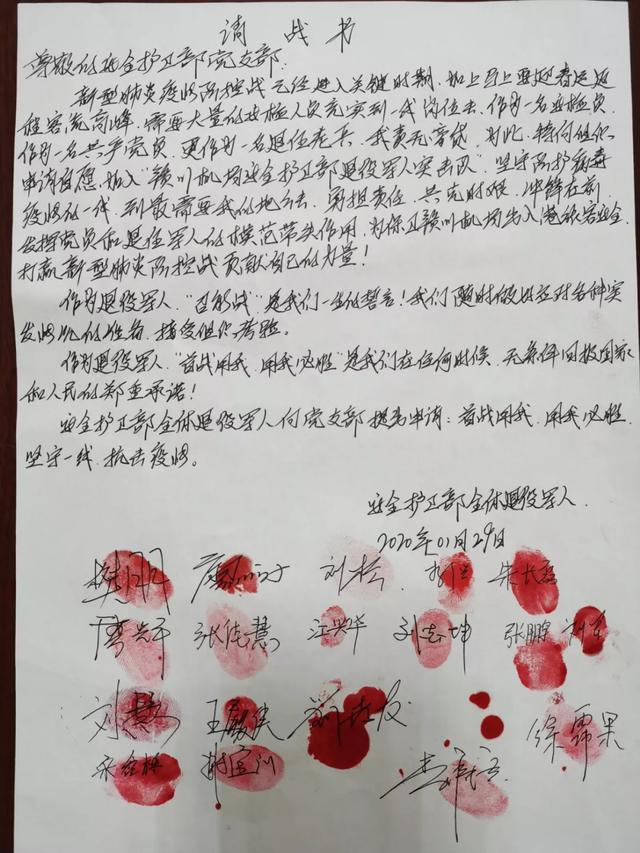 请战书
尊敬的安全护卫部党支部:
新型肺炎疫情防控战已经进入关键时期,加上马上要迎春运返
程客流高峰,需要大量的安检人员充实到一线岗位去,作为一名安检员
作为一名共产党员,更作为一名退伍老兵,我责无旁贷,对此,特向组织
申请自愿加入“赣州机场安全护卫部退役军人突击队”坚守防护病毒
疫情的一线,到最需要我的地方去,勇担责任,共克时艰,冲锋在前
发挥党员和退伍军人的模范带头作用,为保卫赣州机场出入港旅客安全,
打赢新型肺炎防控战贡献自己的力量!
作为退役军人,“召必战”是我们一生的誓言!我们随时做好应对各种突
发情况的准备,接受组织考验。
作为退役军人,“首战用我,用我必胜”是我们在任何时候,无条件回报国家
和人民的郑重承诺!
安全护卫部全体退役军人向党支部提出申请:首战用我,用我必胜,
坚守一线,抗击疫情。
安全护卫部全体退役军人
2020年01月29日
刘松 朱长磊
廖兴平 张佳慧 江兴华 刘志坤 张鹏
刘慧 徐霈果